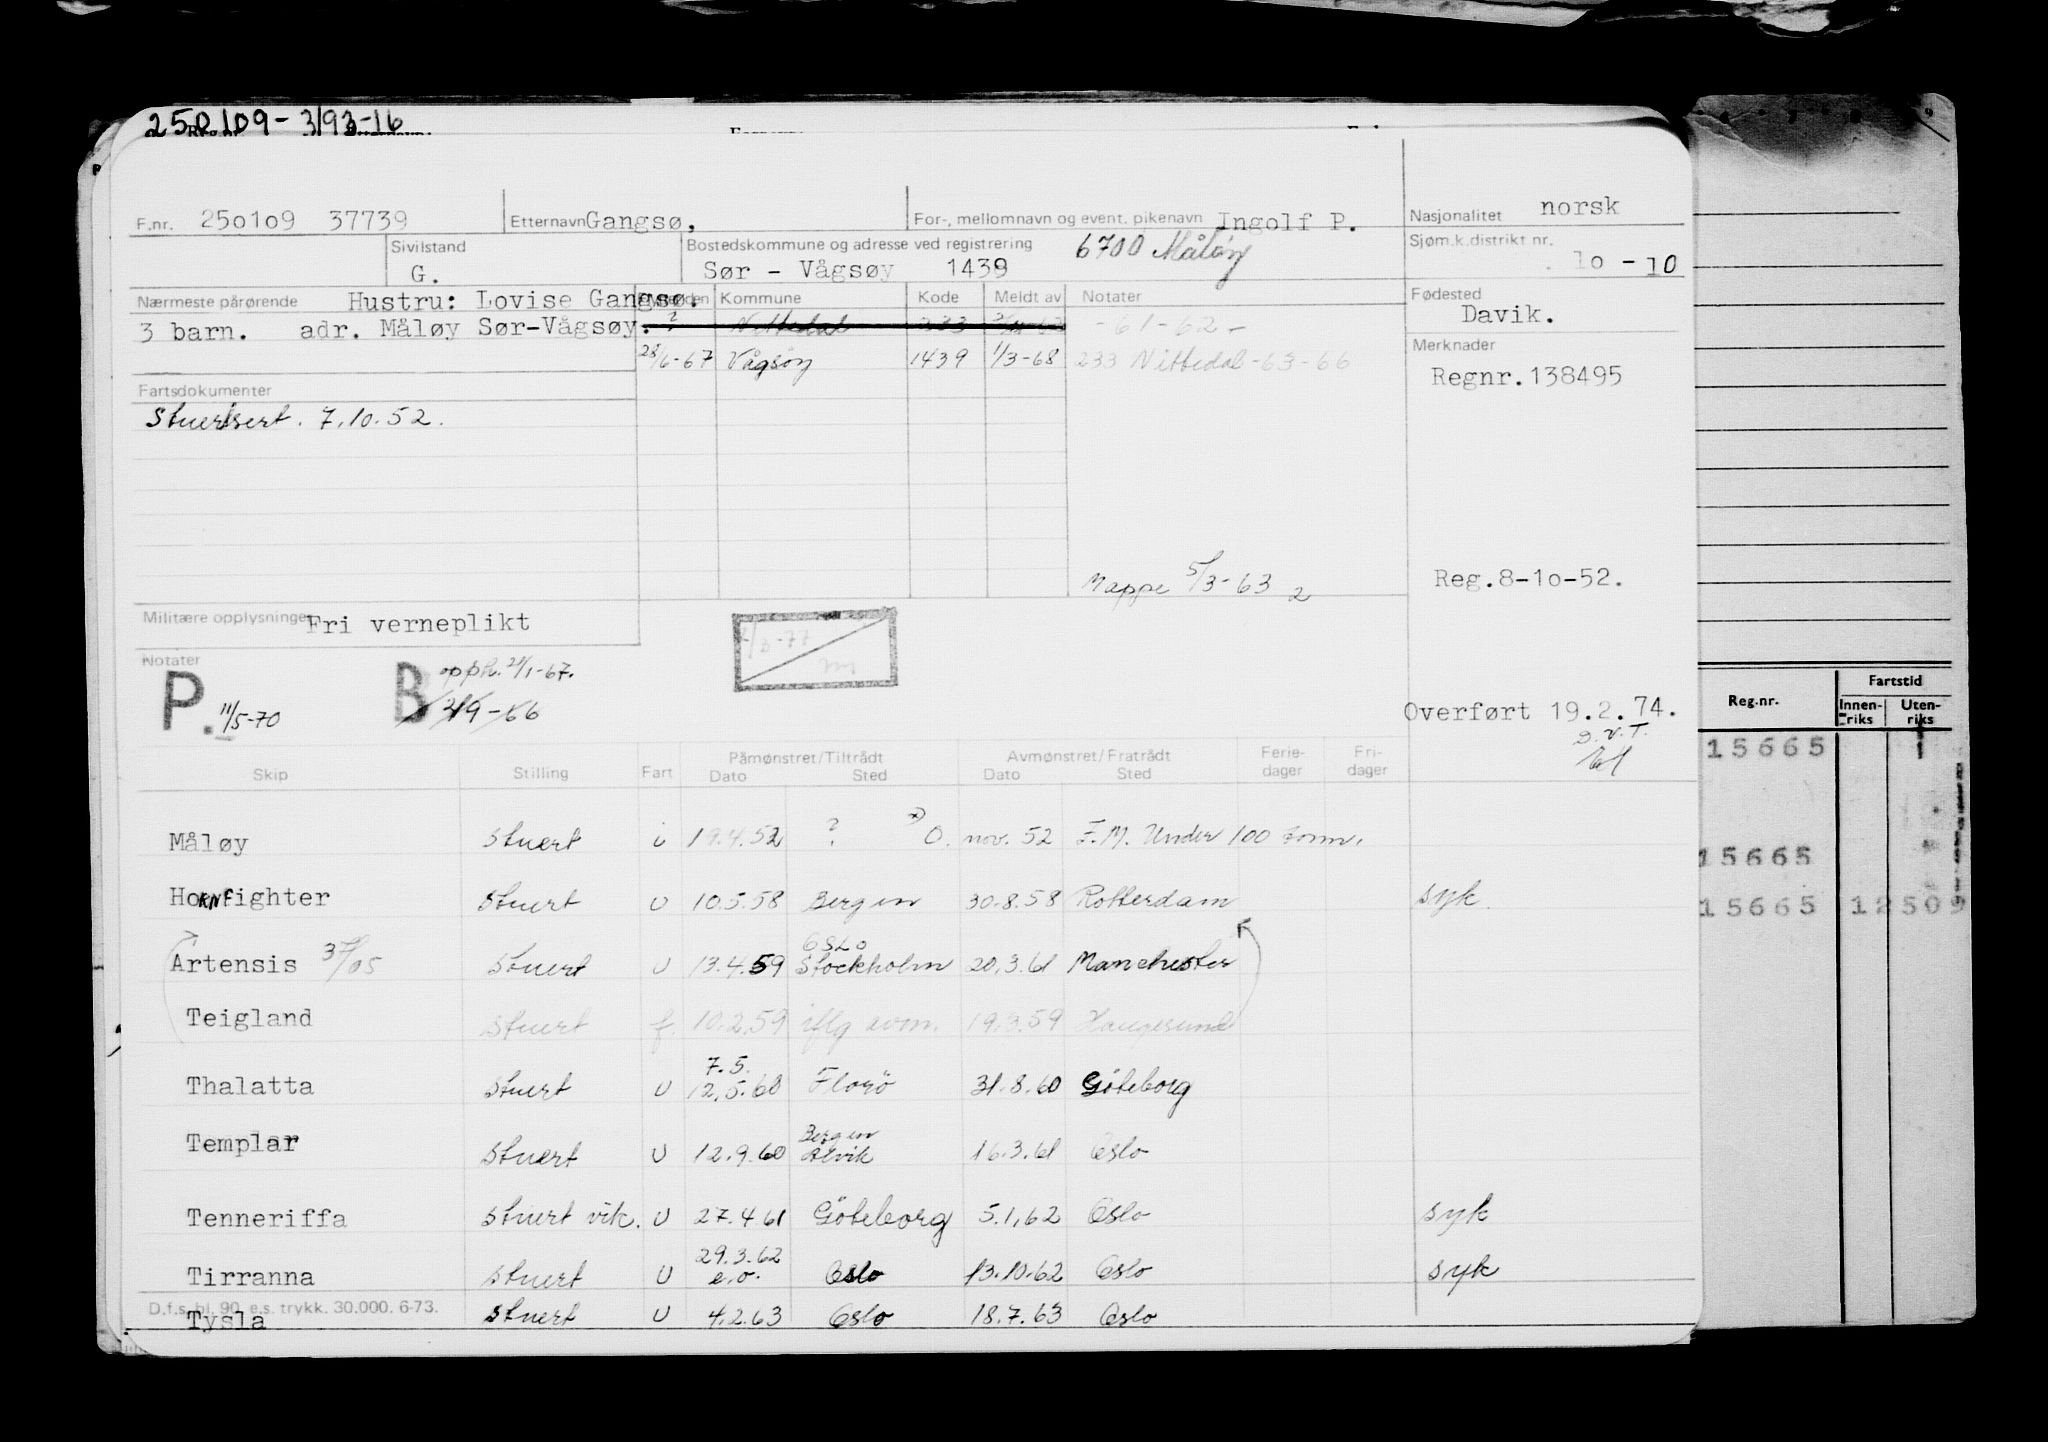 250109-3193-16
F.nr. 250109 37739 Etternavn Gangsø, For-, mellomnavn og event. pikenavn Ingolf P. Nasjonalitet norsk
Sivilstand G. Bostedskommune og adresse ved registrering Sør - Vågsøy 1439 6700 Måløy Sjøm.k.distrikt nr. 10 - 10
Nærmeste pårørende Hustru: Lovise Gangsø. Kommune Kode Meldt av Notater Fødested
3 barn. adr. Måløy Sør-Vågsøy. ? Nittedal 233 -61-62- Davik.
28/6-67 Vågsøy 1439 1/3-68 233 Nittedal -63-66 Merknader
Regnr.138495
Fartsdokumenter
Stuertsert. 7.10.52.
Mappe 5/3-63 2 Reg.8-10-52.
Militære opplysninger Fri verneplikt
Notater
P. 11/5-70 B opph. 21/1-67.
/3-77
Overført 19.2.74.
D.V.T.
Reg.nr. Fartstid
Innenriks Utenriks
15665 1
15665
15665 12509
Skip Stilling Fart Påmønstret/Tiltrådt Dato Sted Avmønstret/Fratrådt Dato Sted Feriedager Fridager
Måløy Stuert i 19.4.52 ? x) O. nov. 52 F.M. Under 100 tonn.
Hornfighter Stuert U 10.5.58 Bergen 30.8.58 Rotterdam syk.
Artensis Stuert U 13.4.59 Oslo Stockholm 20.3.61 Manchester
Teigland Stuert f. 10.2.59 iflg avm. 19.3.59 Haugesund
Thalatta Stuert U 7.5. 12.5.60 Florö 31.8.60 Göteborg
Templar Stuert U 12.9.60 Bergen Ålvik 16.3.61 Oslo
Tenneriffa Stuert vik. U 27.4.61 Göteborg 5.1.62 Oslo syk
Tirranna Stuert U 29.3.62 e.o. Oslo 13.10.62 Oslo syk
D.f.s. bl. 90. e.s. trykk. 30.000. 6-73.
Tysla Stuert U 4.2.63 Oslo 18.7.63 Oslo